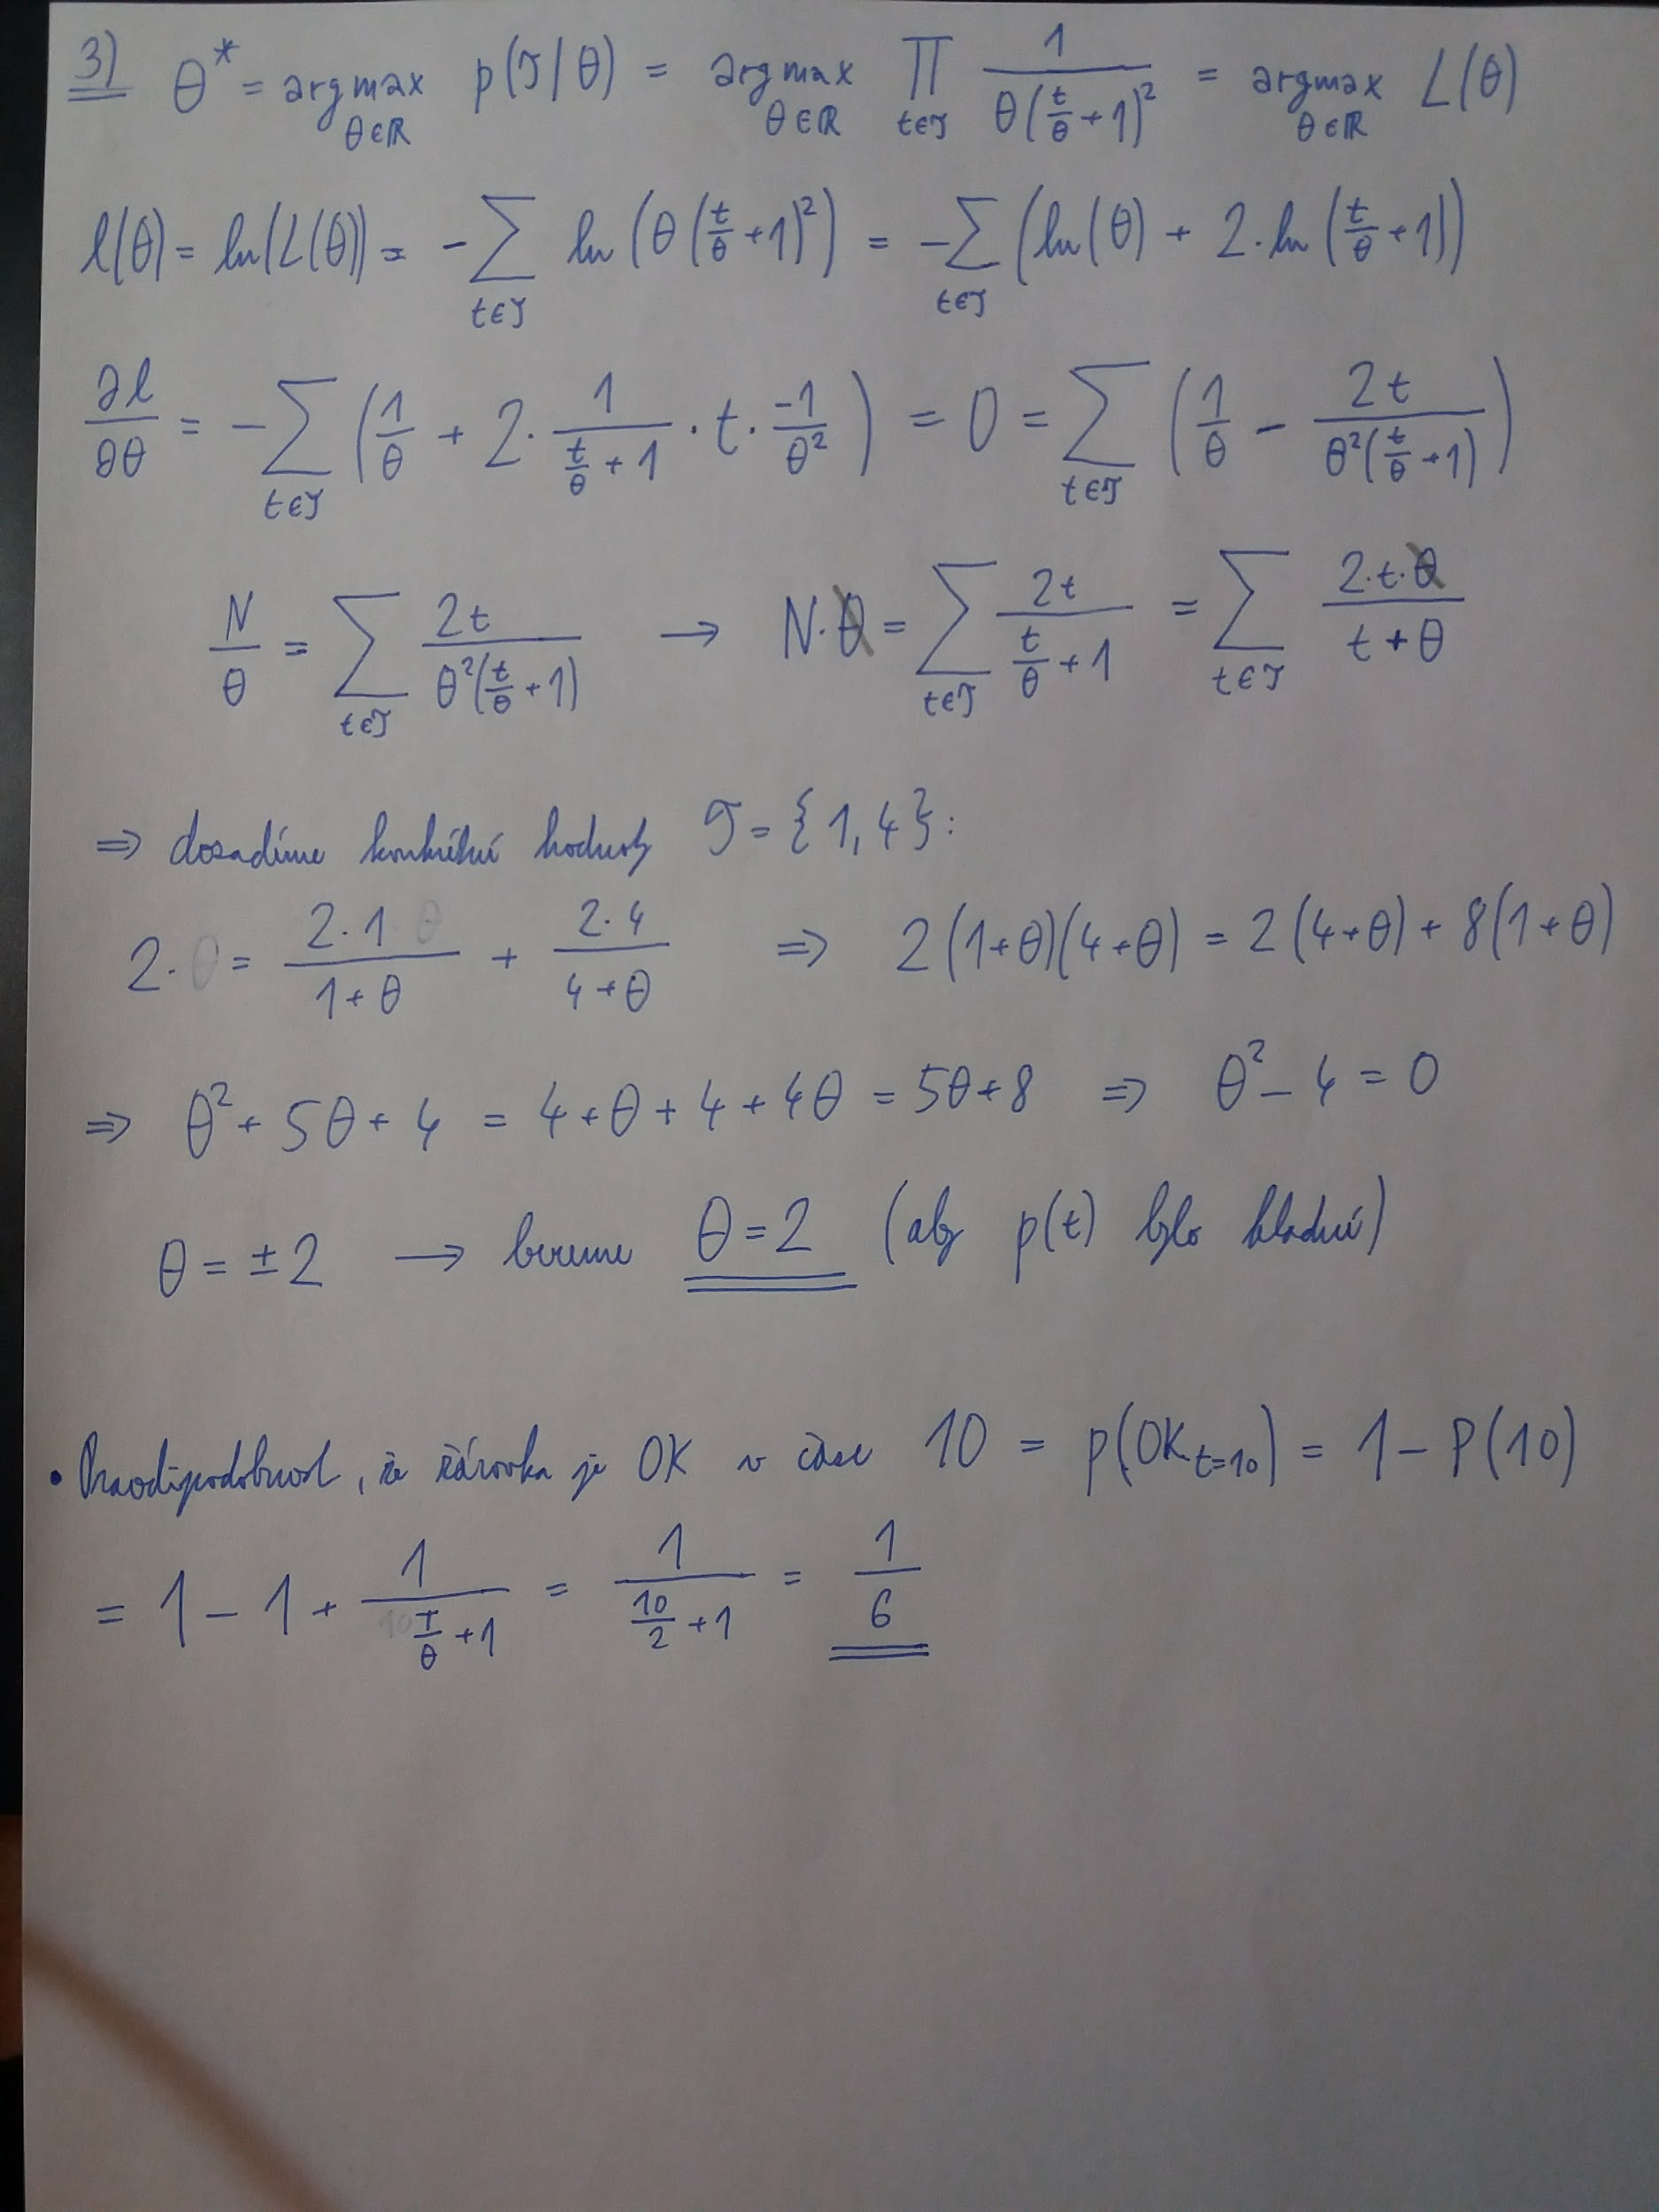 3) θ* = argmax θ∈ℝ p(𝒯|θ) = argmax θ∈ℝ ∏ t∈𝒯 1/(θ(t/θ+1)²) = argmax θ∈ℝ L(θ)
l(θ) = ln(L(θ)) = -∑ t∈𝒯 ln(θ(t/θ+1)²) = -∑ t∈𝒯 (ln(θ) + 2·ln(t/θ+1))
∂l/∂θ = -∑ t∈𝒯 (1/θ + 2·1/(t/θ+1)·t·-1/θ²) = 0 = ∑ t∈𝒯 (1/θ - 2t/(θ²(t/θ+1)))
N/θ = ∑ t∈𝒯 2t/(θ²(t/θ+1)) → N·θ = ∑ t∈𝒯 2t/(t/θ+1) = ∑ t∈𝒯 2·t·θ/(t+θ)
⇒ dosadíme konkrétní hodnoty 𝒯 = {1,4}:
2· = 2·1/(1+θ) + 2·4/(4+θ) ⇒ 2(1+θ)(4+θ) = 2(4+θ) + 8(1+θ)
⇒ θ² + 5θ + 4 = 4+θ+4+4θ = 5θ+8 ⇒ θ² - 4 = 0
θ = ±2 → bereme θ = 2 (aby p(t) bylo kladné)
• Pravděpodobnost, že žárovka je OK v čase 10 = p(OK t=10) = 1 - P(10)
= 1 - 1 + 1/(T/θ+1) = 1/(10/2+1) = 1/6